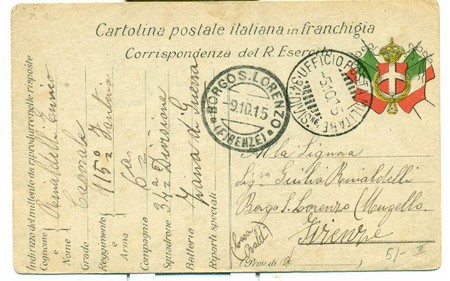 Cartolina postale italiana in franchigia
Corrispondenza del R. Esercito
BORGO S. LORENZO
9.10.15
(FIRENZE)
UFFICIO POSTA MILITARE
5.10.15
DIVISIONE
Indirizzo del mittente da riprodurre nelle risposte
Cognome
Nome
Grado Caporale
Reggimento 115° Fanteria
Compagnia 6a
Squadrone 34a Divisione
Batteria Zaina di Guerra
Riparti speciali
Alla Signora
Sig.ra Giulia Romaldelli
Borgo S. Lorenzo (Mugello
Firenze
(Casa
Prov. di
5/-